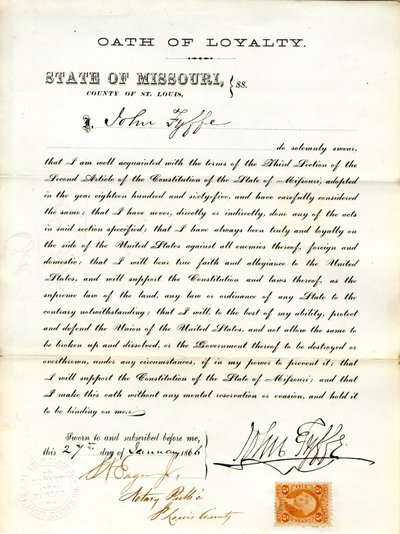 OATH OF LOYALTY.
STATE OF MISSOURI, } SS.
COUNTY OF ST. LOUIS,
I, John Fyffe
do solemnly swear,
that I am well acquainted with the terms of the Third Section of the
Second Article of the Constitution of the State of Missouri, adopted
in the year eighteen hundred and sixty-five, and have carefully considered
the same; that I have never, directly or indirectly, done any of the acts
in said section specified; that I have always been truly and loyally on
the side of the United States against all enemies thereof, foreign and
domestic; that I will bear true faith and allegiance to the United
States, and will support the Constitution and laws thereof, as the
supreme law of the land, any law or ordinance of any State to the
contrary notwithstanding; that I will, to the best of my ability, protect
and defend the Union of the United States, and not allow the same to
be broken up and dissolved, or the Government thereof to be destroyed or
overthrown, under any circumstances, if in my power to prevent it; that
I will support the Constitution of the State of Missouri; and that
I make this oath without any mental reservation or evasion, and hold it
to be binding on me.
Sworn to and subscribed before me,
this 27th day of January 1866
John Fyffe
Notary Public
St Louis County